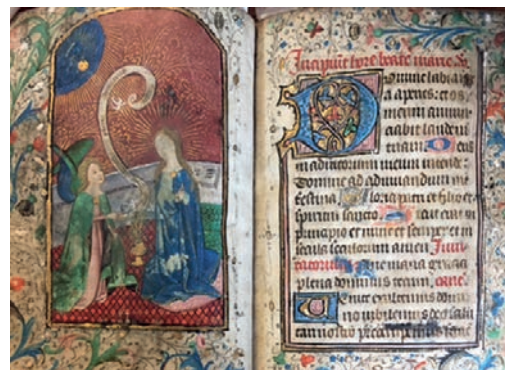 Incipiunt hore beate marie v
Domine labia m
ea aperies: et os
meum annun
ciabit laudem
tuam. Deus
in adiutorium meum intende:
Domine ad adiuvandum me
festina. Gloria patri et filio et
spiritui sancto. Sicut erat in
principio et nunc et semper et in
secula seculorum amen. Invi
tatorium. Ave maria gracia
plena dominus tecum. Dominus
Venite exultemus domi
no iubilemus deo saluta